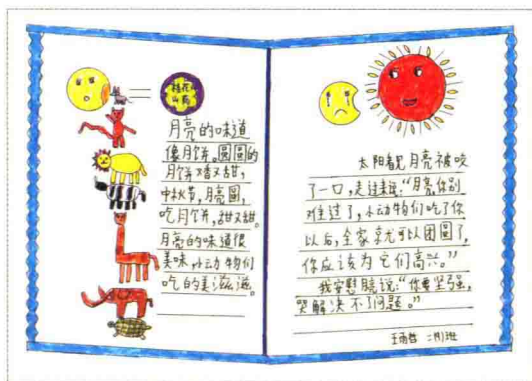 桂花
山药
月亮的味道
像月饼。圆圆的
月饼又香又甜，
中秋节，月亮圆，
吃月饼，甜又甜。
月亮的味道很
美味，小动物们
吃的美滋滋。
太阳看见月亮被咬
了一口，走过去说：“月亮，你别
难过了，小动物们吃了你
以后，全家就可以团圆了，
你应该为它们高兴。”
我安慰月亮说：“你要坚强，
哭解决不了问题。”
二（1）班